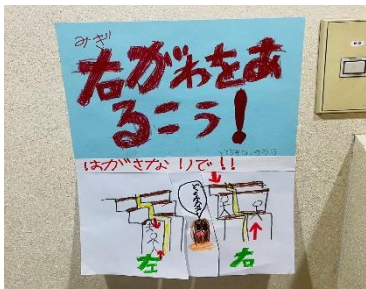 みぎ
右がわをあ
るこう!
はがさないで!!
左
右